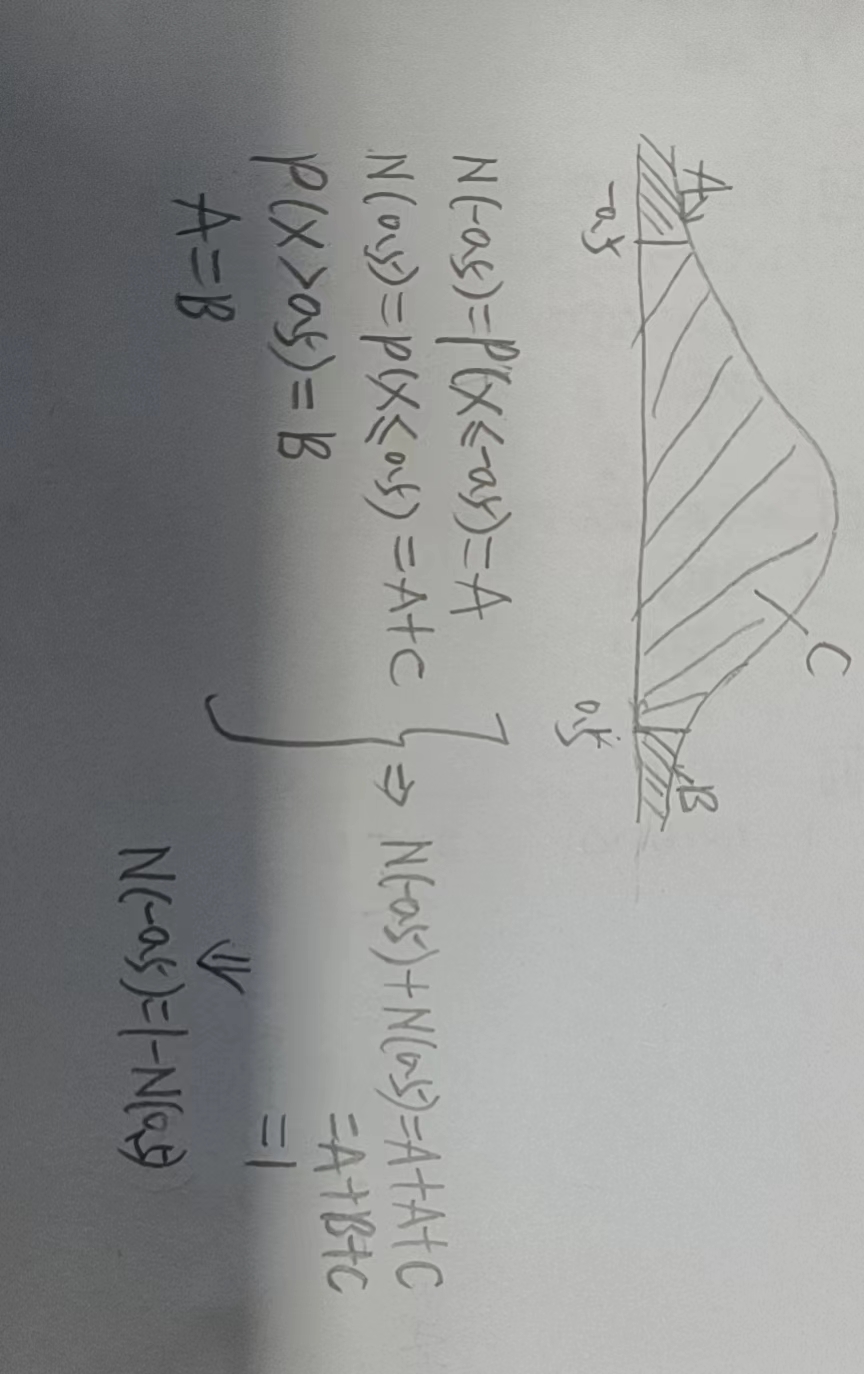 A
C
B
-0.5
0.5
N(-0.5)=P(X≤-0.5)=A
N(0.5)=P(X≤0.5)=A+C
P(X>0.5)=B
A=B
⇒ N(-0.5)+N(0.5)=A+A+C
=A+B+C
=1
⇓
N(-0.5)=1-N(0.5)